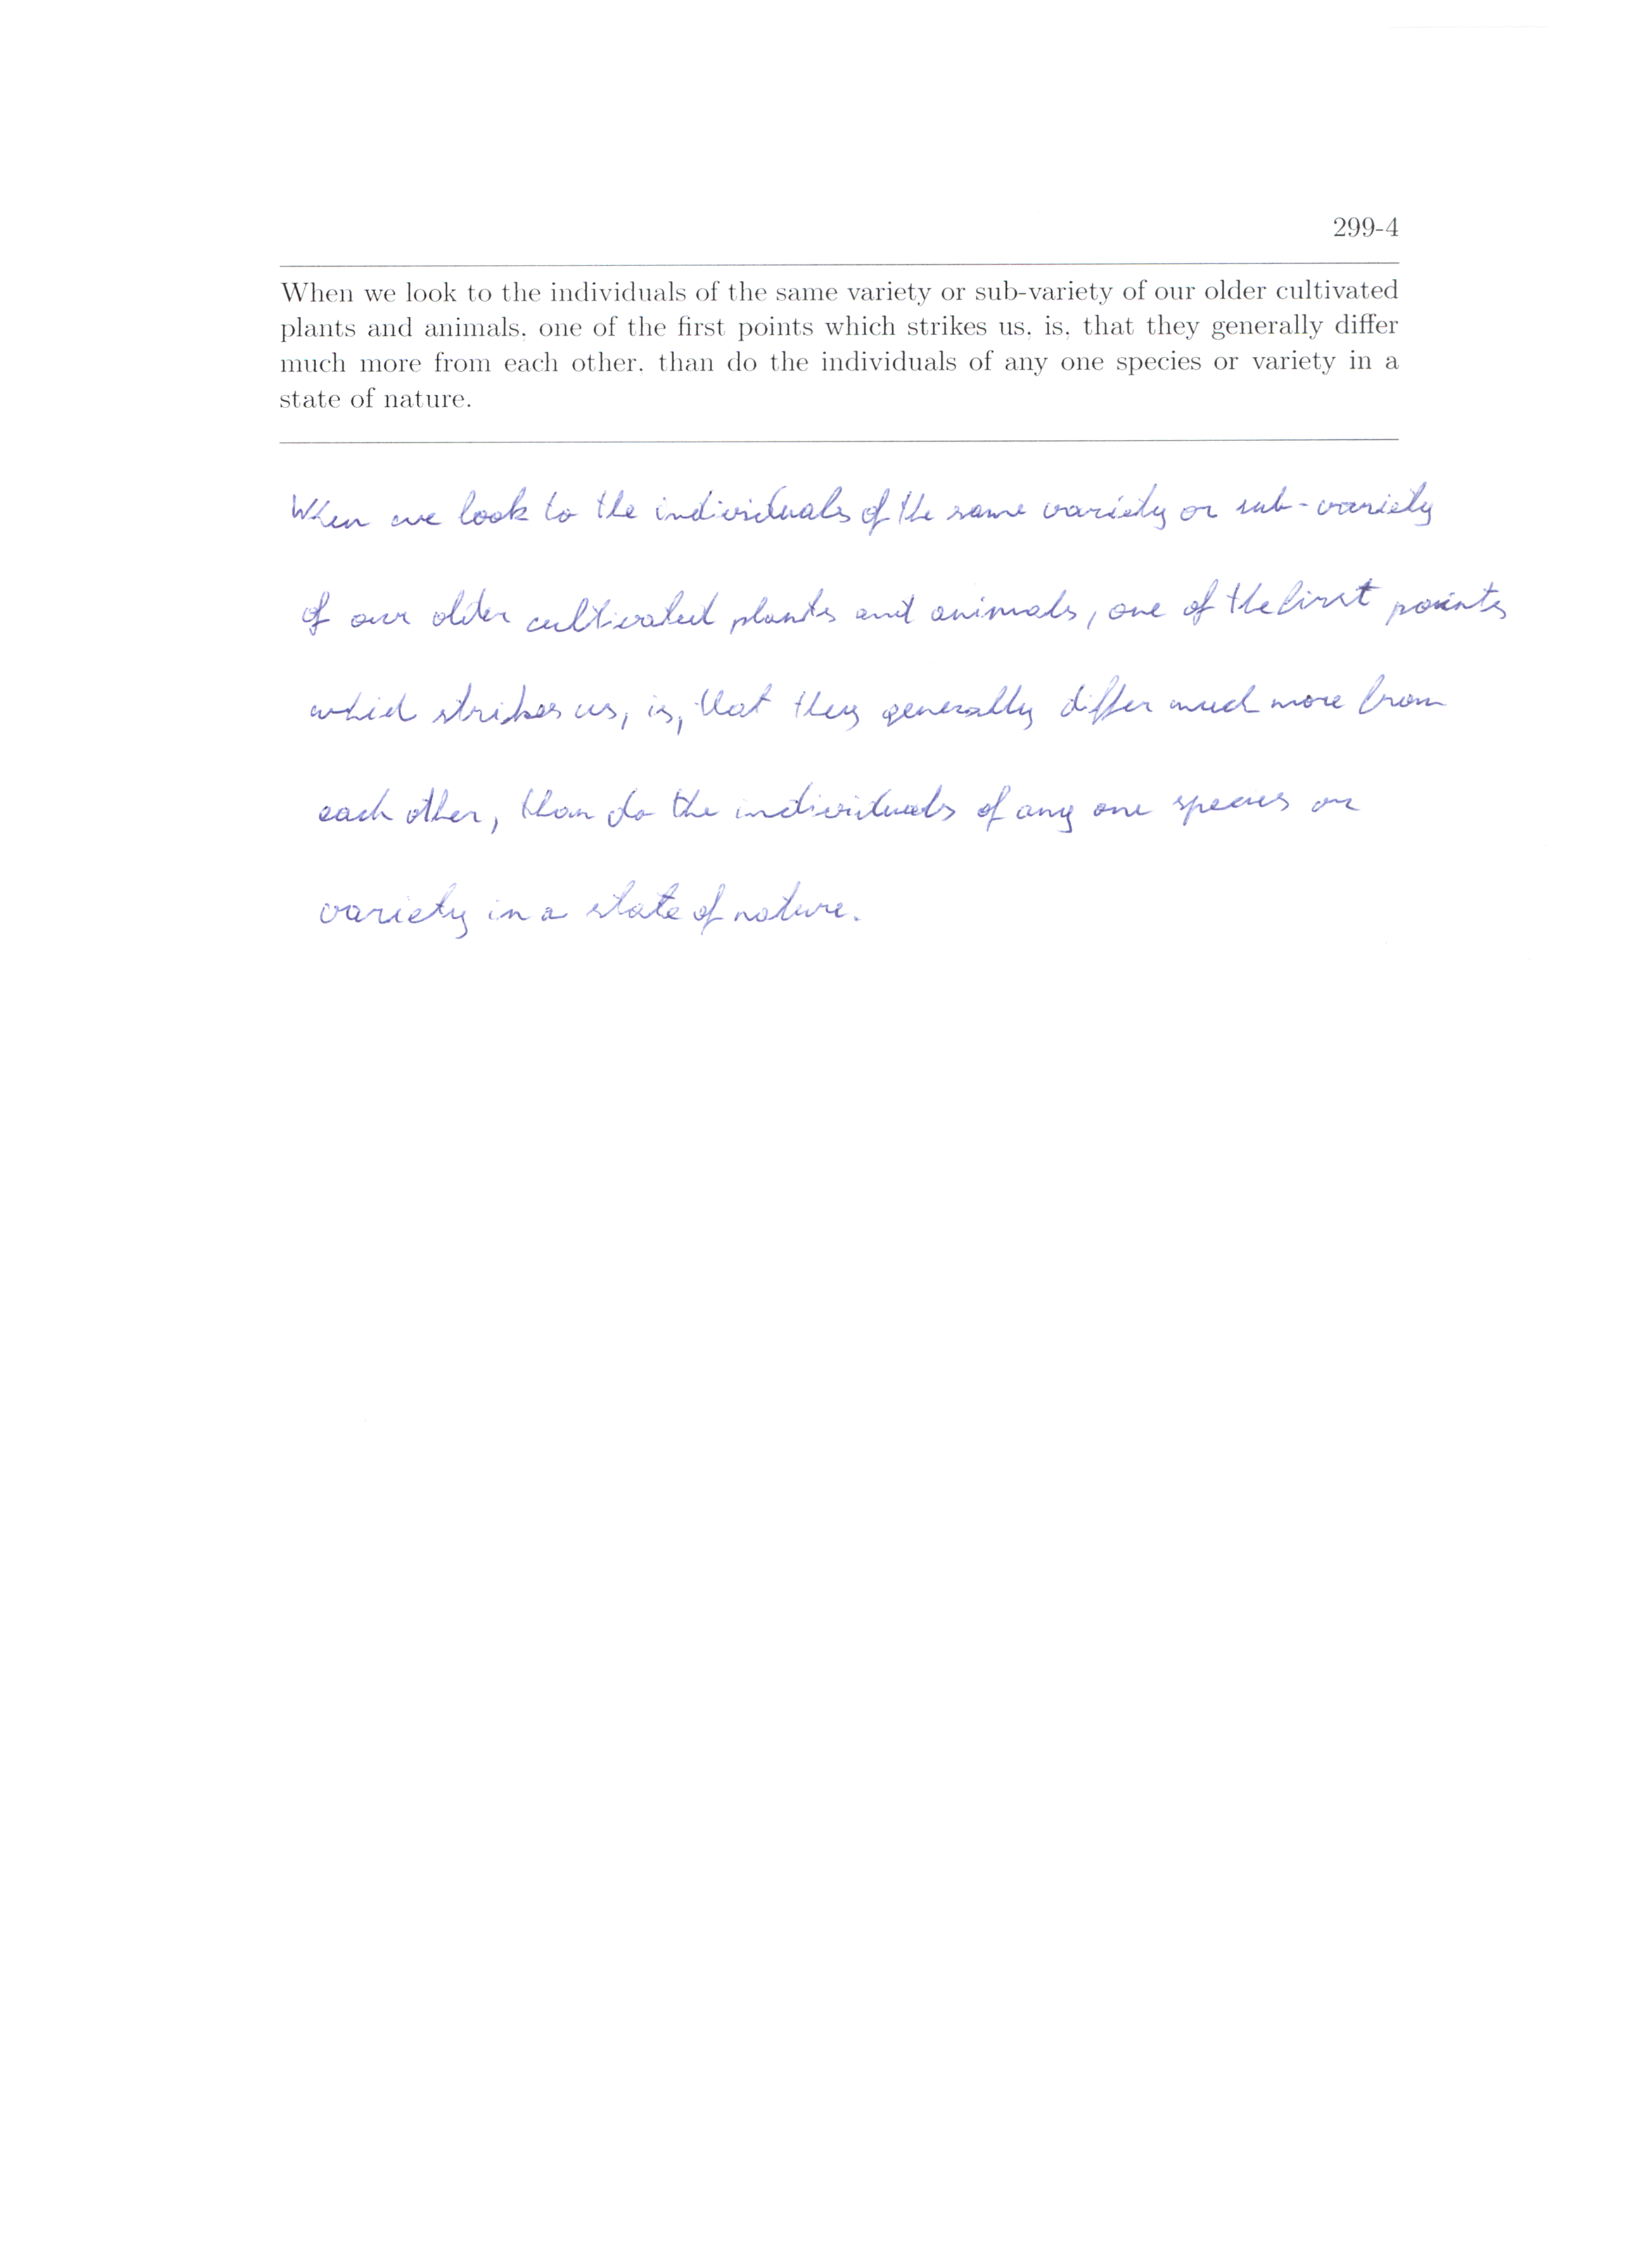 299-4
When we look to the individuals of the same variety or sub-variety of our older cultivated
plants and animals, one of the first points which strikes us, is, that they generally differ
much more from each other, than do the individuals of any one species or variety in a
state of nature.
When we look to the individuals of the same variety or sub-variety
of our older cultivated plants and animals, one of the first points
which strikes us, is, that they generally differ much more from
each other, than do the individuals of any one species or
variety in a state of nature.